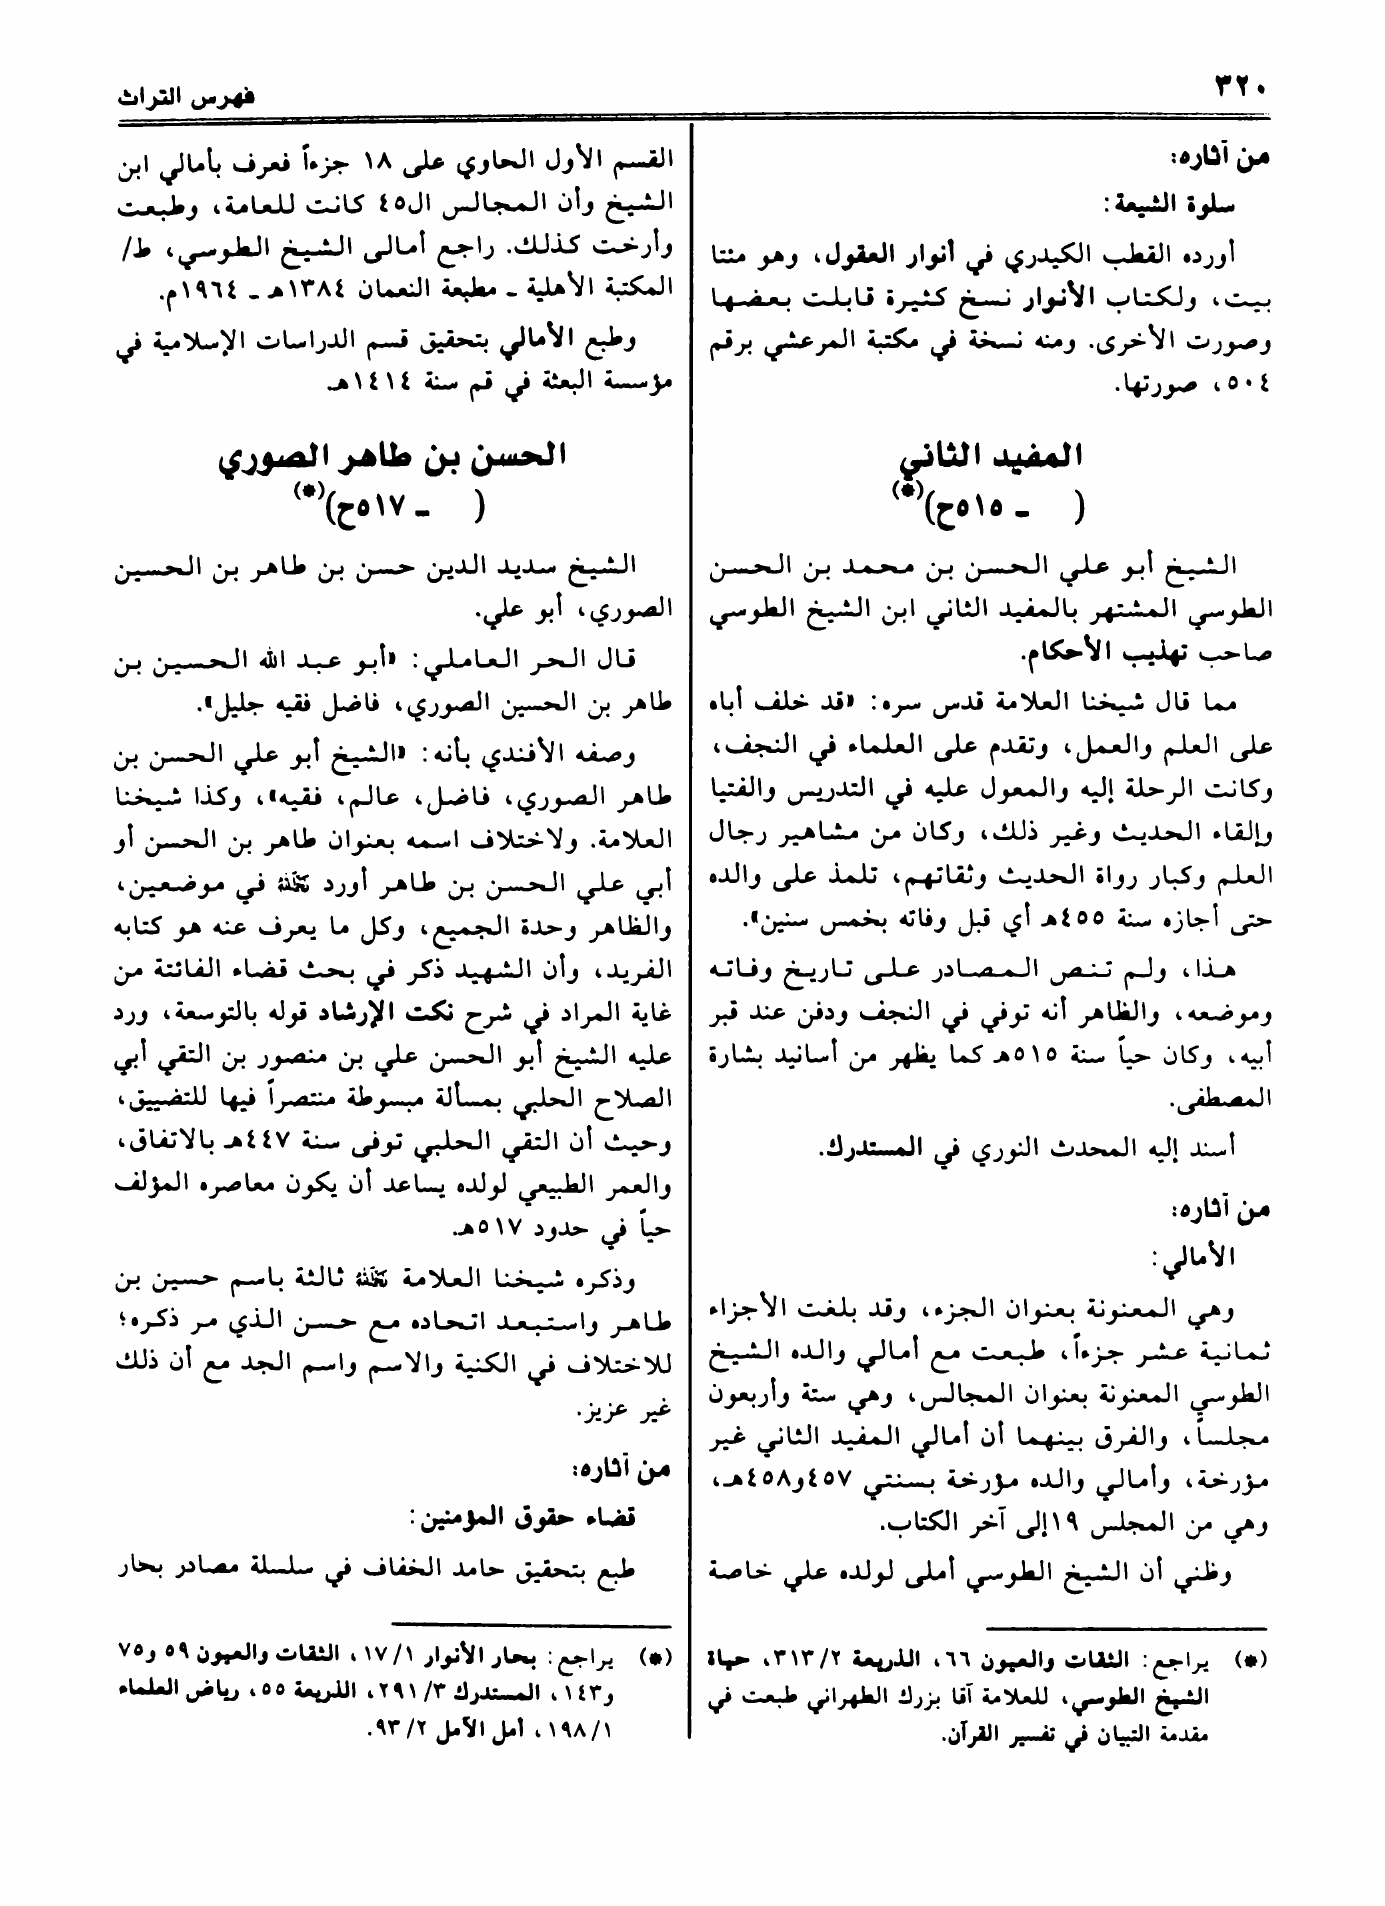 ٣٢٠
فهرس التراث
من آثاره:
سلوة الشيعة:
أورده القطب الكيدري في أنوار العقول، وهو مئتا
بيت، ولكتاب الأنوار نسخ كثيرة قابلت بعضها
وصورت الأخرى. ومنه نسخة في مكتبة المرعشي برقم
٥٠٤، صورتها.
المفيد الثاني
( ـ ٥١٥ح)(*)
الشيخ أبو علي الحسن بن محمد بن الحسن
الطوسي المشتهر بالمفيد الثاني ابن الشيخ الطوسي
صاحب تهذيب الأحكام.
مما قال شيخنا العلامة قدس سره: «قد خلف أباه
على العلم والعمل، وتقدم على العلماء في النجف،
وكانت الرحلة إليه والمعول عليه في التدريس والفتيا
وإلقاء الحديث وغير ذلك، وكان من مشاهير رجال
العلم وكبار رواة الحديث وثقاتهم، تلمذ على والده
حتى أجازه سنة ٤٥٥هـ أي قبل وفاته بخمس سنين».
هذا، ولم تنص المصادر على تاريخ وفاته
وموضعه، والظاهر أنه توفي في النجف ودفن عند قبر
أبيه، وكان حياً سنة ٥١٥هـ كما يظهر من أسانيد بشارة
المصطفى.
أسند إليه المحدث النوري في المستدرك.
من آثاره:
الأمالي:
وهي المعنونة بعنوان الجزء، وقد بلغت الأجزاء
ثمانية عشر جزءاً، طبعت مع أمالي والده الشيخ
الطوسي المعنونة بعنوان المجالس، وهي ستة وأربعون
مجلساً، والفرق بينهما أن أمالي المفيد الثاني غير
مؤرخة، وأمالي والده مؤرخة بسنتي ٤٥٧و٤٥٨هـ،
وهي من المجلس ١٩إلى آخر الكتاب.
وظني أن الشيخ الطوسي أملى لولده علي خاصة
(*) يراجع: الثقات والعيون ٦٦، الذريعة ٢/ ٣١٣، حياة
الشيخ الطوسي، للعلامة آقا بزرك الطهراني طبعت في
مقدمة التبيان في تفسير القرآن.
القسم الأول الحاوي على ١٨ جزءاً فعرف بأمالي ابن
الشيخ وأن المجالس ال٤٥ كانت للعامة، وطبعت
وأرخت كذلك. راجع أمالى الشيخ الطوسي، ط/
المكتبة الأهلية ـ مطبعة النعمان ١٣٨٤هـ ـ ١٩٦٤م.
وطبع الأمالي بتحقيق قسم الدراسات الإسلامية في
مؤسسة البعثة في قم سنة ١٤١٤هـ.
الحسن بن طاهر الصوري
( ـ ٥١٧ح)(*)
الشيخ سديد الدين حسن بن طاهر بن الحسين
الصوري، أبو علي.
قال الحر العاملي: «أبو عبد الله الحسين بن
طاهر بن الحسين الصوري، فاضل فقيه جليل».
وصفه الأفندي بأنه: «الشيخ أبو علي الحسن بن
طاهر الصوري، فاضل، عالم، فقيه»، وكذا شيخنا
العلامة. ولاختلاف اسمه بعنوان طاهر بن الحسن أو
أبي علي الحسن بن طاهر أورد في موضعين،
والظاهر وحدة الجميع، وكل ما يعرف عنه هو كتابه
الفريد، وأن الشهيد ذكر في بحث قضاء الفائتة من
غاية المراد في شرح نكت الإرشاد قوله بالتوسعة، ورد
عليه الشيخ أبو الحسن علي بن منصور بن التقي أبي
الصلاح الحلبي بمسألة مبسوطة منتصراً فيها للتضييق،
وحيث أن التقي الحلبي توفى سنة ٤٤٧هـ بالاتفاق،
والعمر الطبيعي لولده يساعد أن يكون معاصره المؤلف
حياً في حدود ٥١٧هـ.
وذكره شيخنا العلامة ثالثة باسم حسين بن
طاهر واستبعد اتحاده مع حسن الذي مر ذكره؛
للاختلاف في الكنية والاسم واسم الجد مع أن ذلك
غير عزيز.
من آثاره:
قضاء حقوق المؤمنين:
طبع بتحقيق حامد الخفاف في سلسلة مصادر بحار
(*) يراجع: بحار الأنوار ١/ ١٧، الثقات والعيون ٥٩ و٧٥
و١٤٣، المستدرك ٣/ ٢٩١، الذريعة ٥٥، رياض العلماء
١/ ١٩٨، أمل الآمل ٢/ ٩٣.